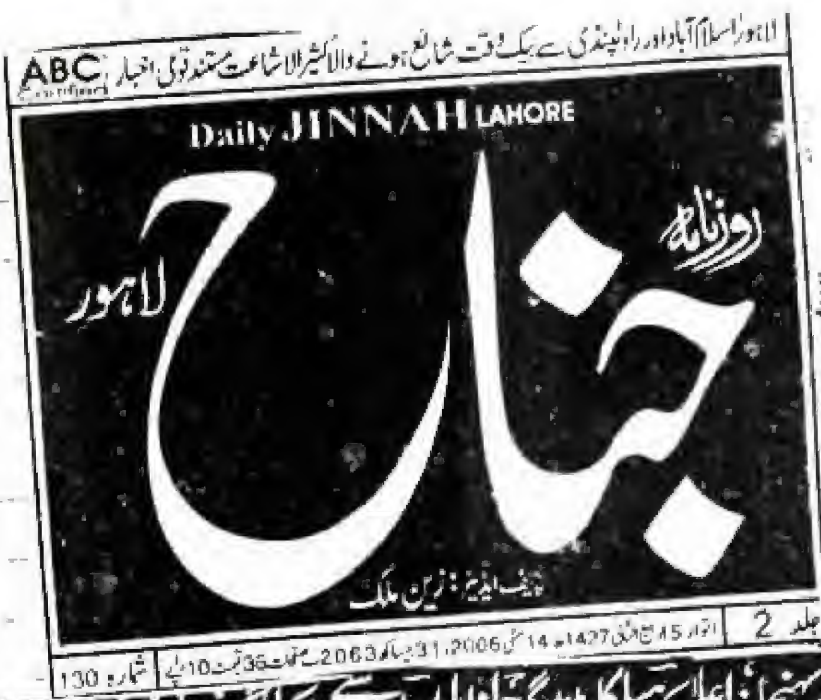 لاہور اسلام آباد اور راولپنڈی سے بیک وقت شائع ہونے والا کثیر الاشاعت مستند قومی اخبار ABC
Daily JINNAH LAHORE
روزنامہ
جناح
لاہور
چیف ایڈیٹر: زین ملک
جلد 2 اتوار 15 ربیع الثانی 1427ھ 14 مئی 2006، 31 بیساکھ 2063 صفحات 36 قیمت 10 روپے شمارہ 130